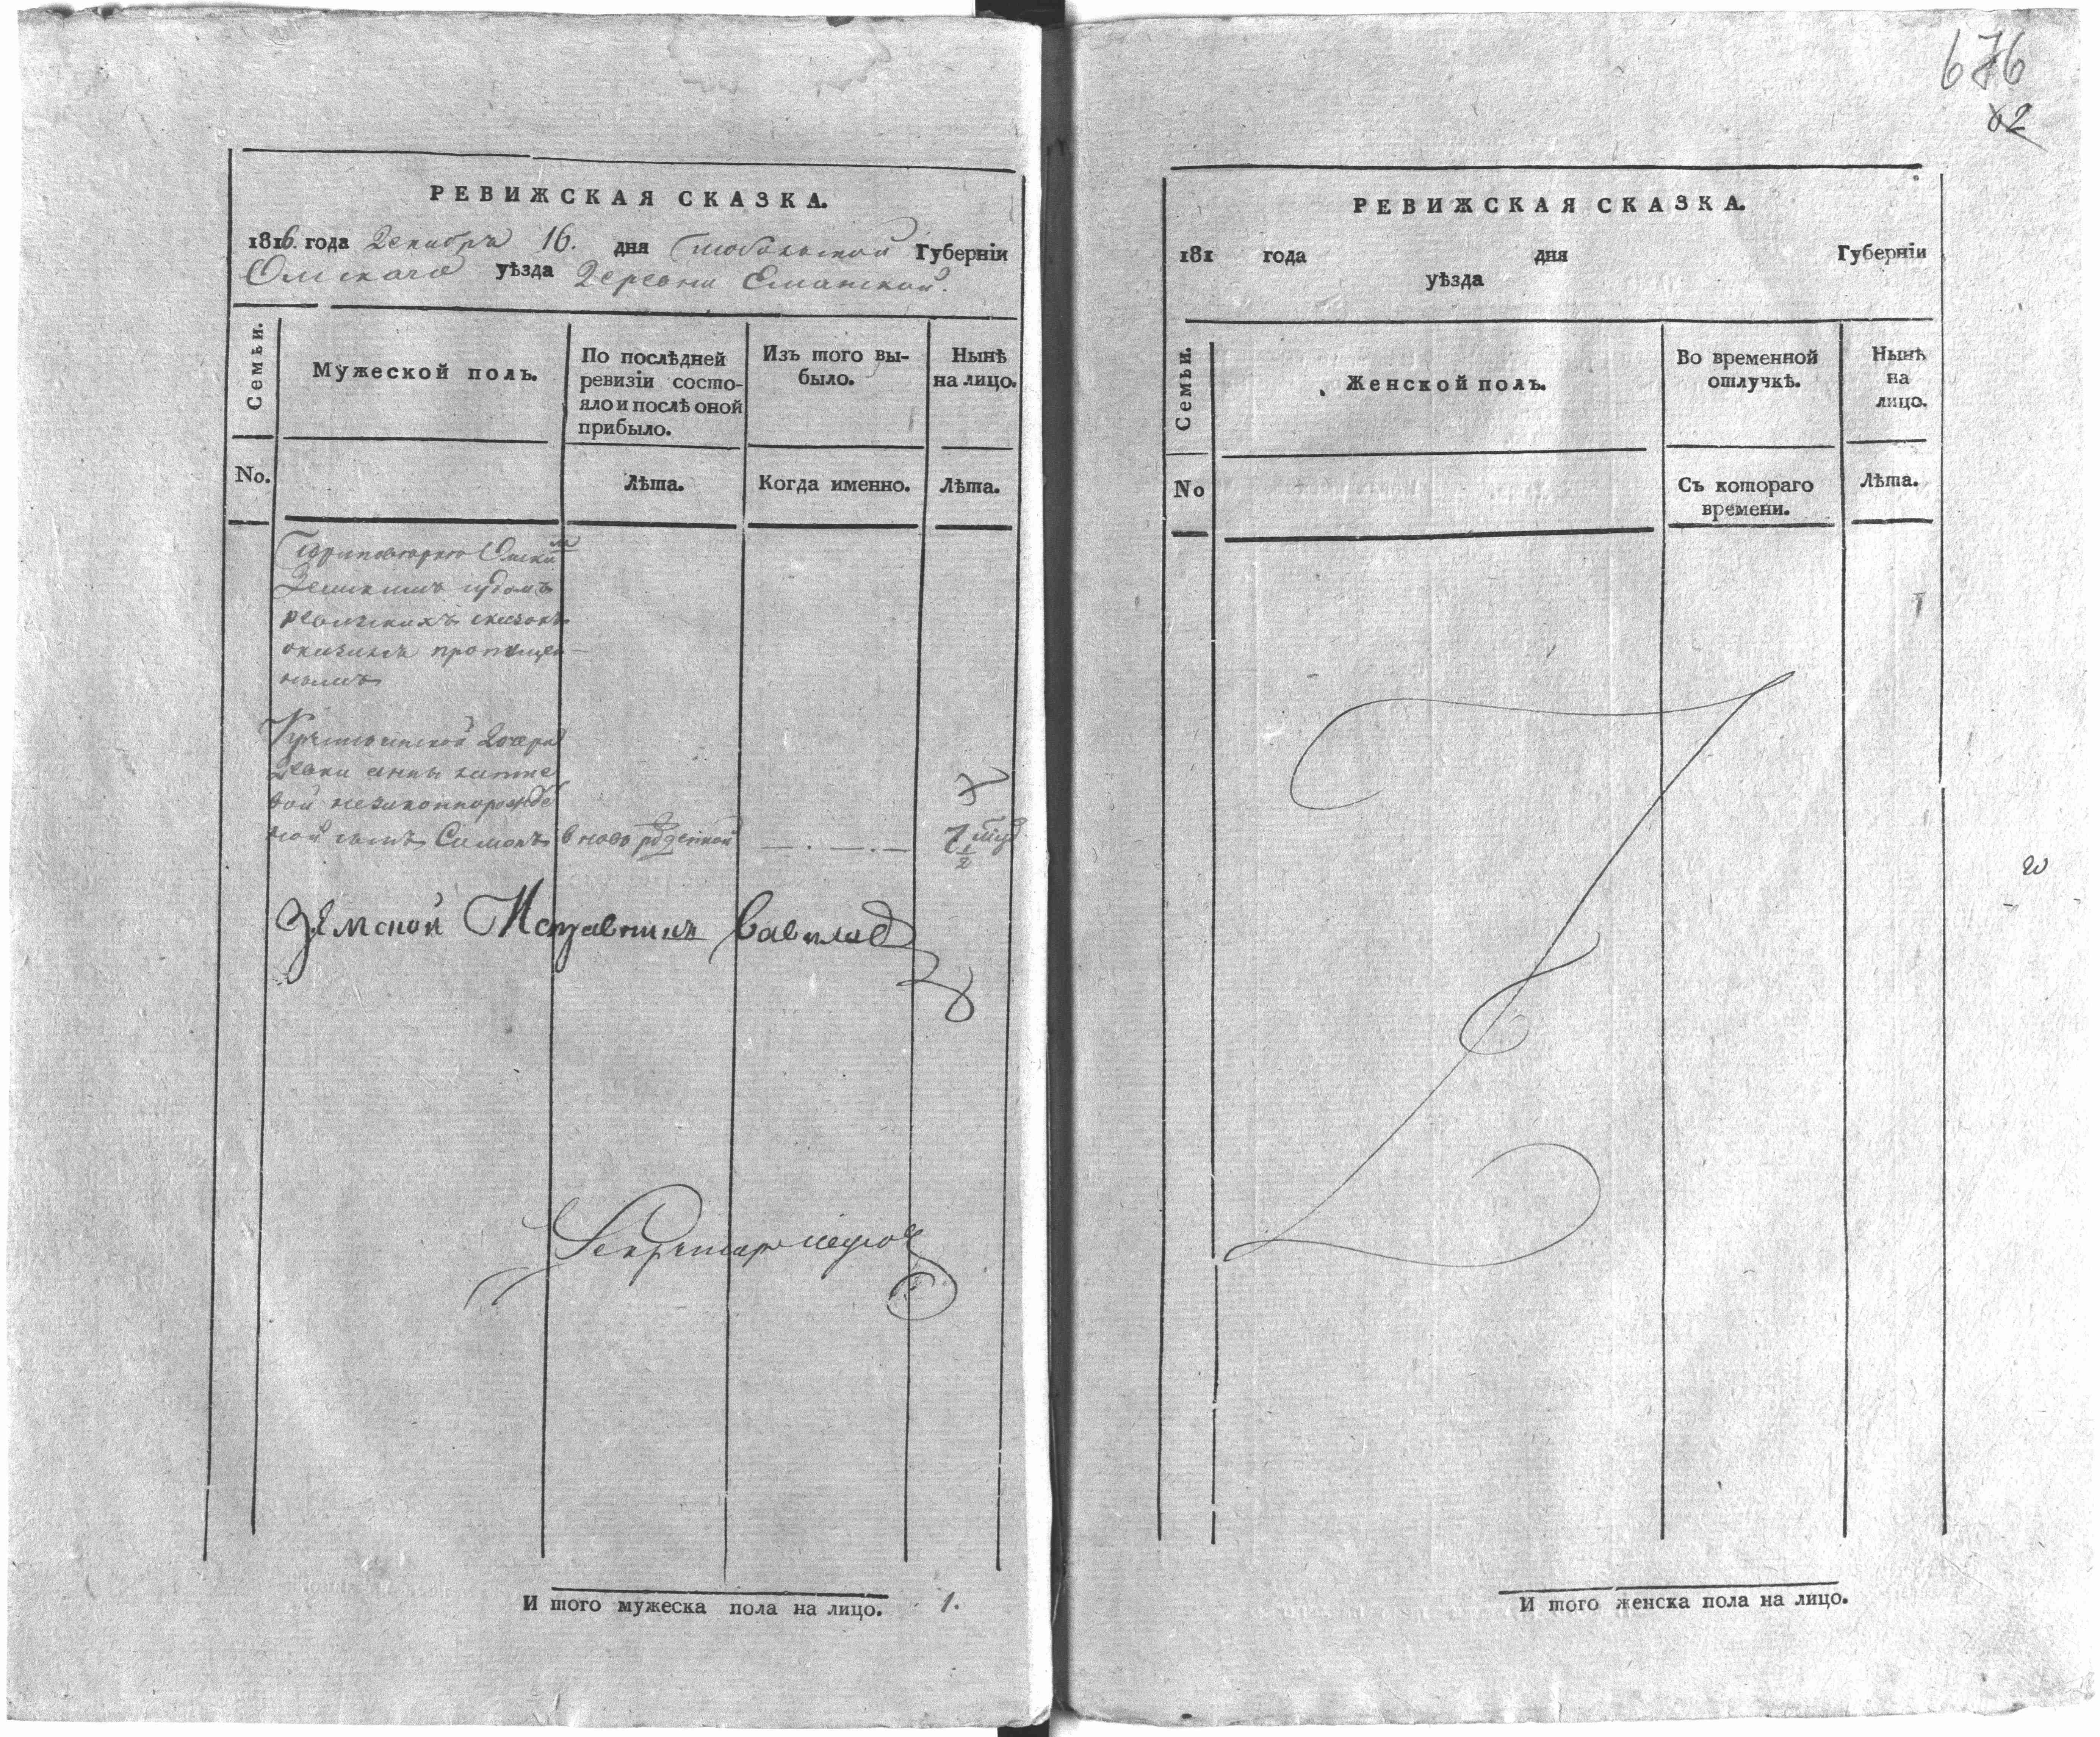 РЕВИЖСКАЯ СКАЗКА.
1816. года Декабря 16. дня Тобольской Губерніи
Омскаго уѣзда Деревни Еманской.
Семьи.
Мужеской полъ.
По послѣдней
ревизіи состо-
яло и послѣ оной
прибыло.
Изъ того вы-
было.
Нынѣ
на лицо.
No.
Лѣта.
Когда именно.
Лѣта.
Земскимъ судомъ
ревижскихъ сказокъ
оказался пропущен-
нымъ
дочери
девки анны
вой незаконнорожде
ной сынъ Симонъ в новь рожденной — . — . — 7 1/2
Земской Исправникъ Вавилов
Секретарь
И того мужеска пола на лицо. 1.
676
62
РЕВИЖСКАЯ СКАЗКА.
181 года дня Губерніи
уѣзда
Семьи.
Женской полъ.
Во временной
отлучкѣ.
Нынѣ
на
лицо.
No
Съ котораго
времени.
Лѣта.
И того женска пола на лицо.